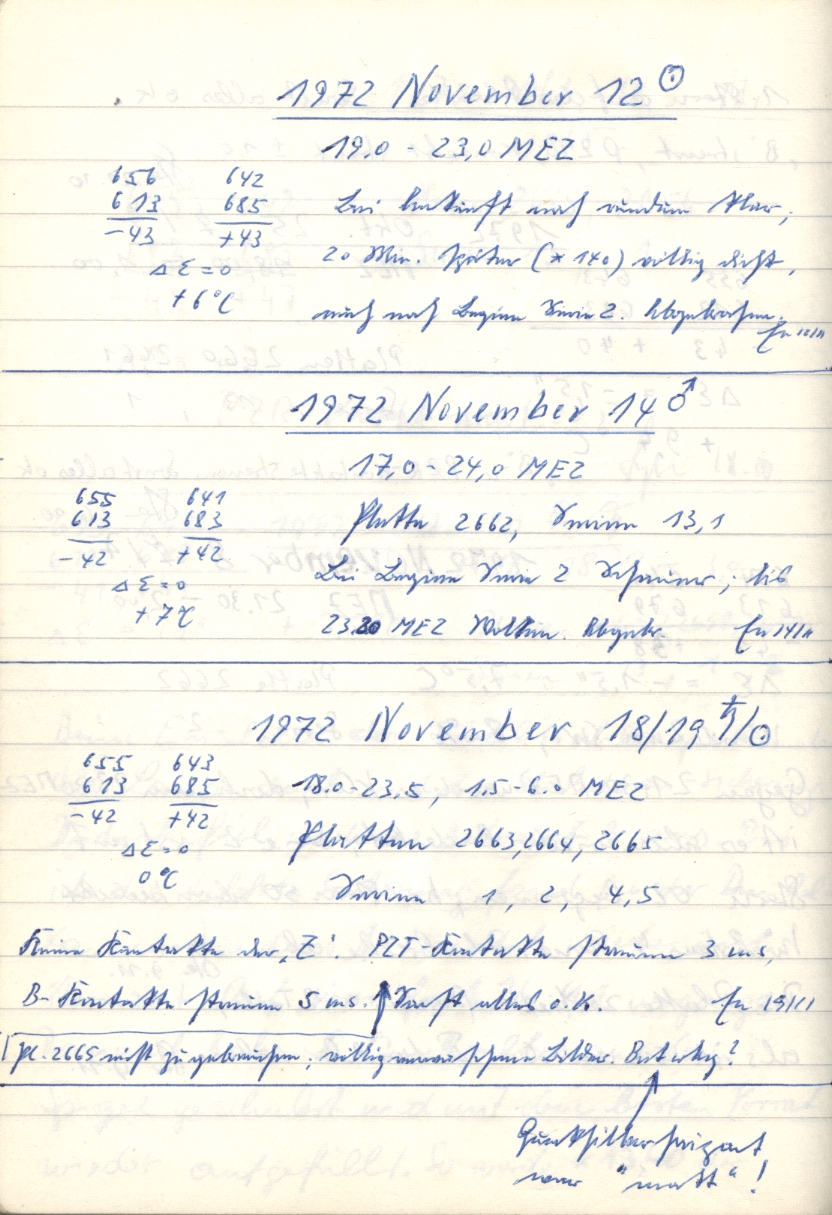 1972 November 12 ☉
19.0 - 23,0 MEZ
656 642
613 685
-43 +43
ΔE = 0
+6°C
Bei Ankunft noch rundum klar,
20 Min. später (* 140) völlig dicht,
auch nach Beginn Serie 2. Abgebrochen.
En 12/11
1972 November 14 ♂
17,0 - 24,0 MEZ
655 641
613 683
-42 +42
ΔE = 0
+7°C
Platte 2662, Serien 13,1
Bei Beginn Serie 2 Schauer, bis
23.30 MEZ Wolken. Abgebr. En 14/11
1972 November 18/19 ♄/☉
655 643
613 685
-42 +42
ΔE = 0
0°C
18.0-23,5, 1.5-6.0 MEZ
Platten 2663, 2664, 2665
Serien 1, 2, 4,5
Keine Kontakte der „Z". PZT-Kontakte streuen 3 ms,
B-Kontakte streuen 5 ms. Sonst alles o.K. En 19/11
Pl. 2665 nicht zu gebrauchen, völlig verwaschene Bilder.
Quecksilberhorizont
war "matt"!